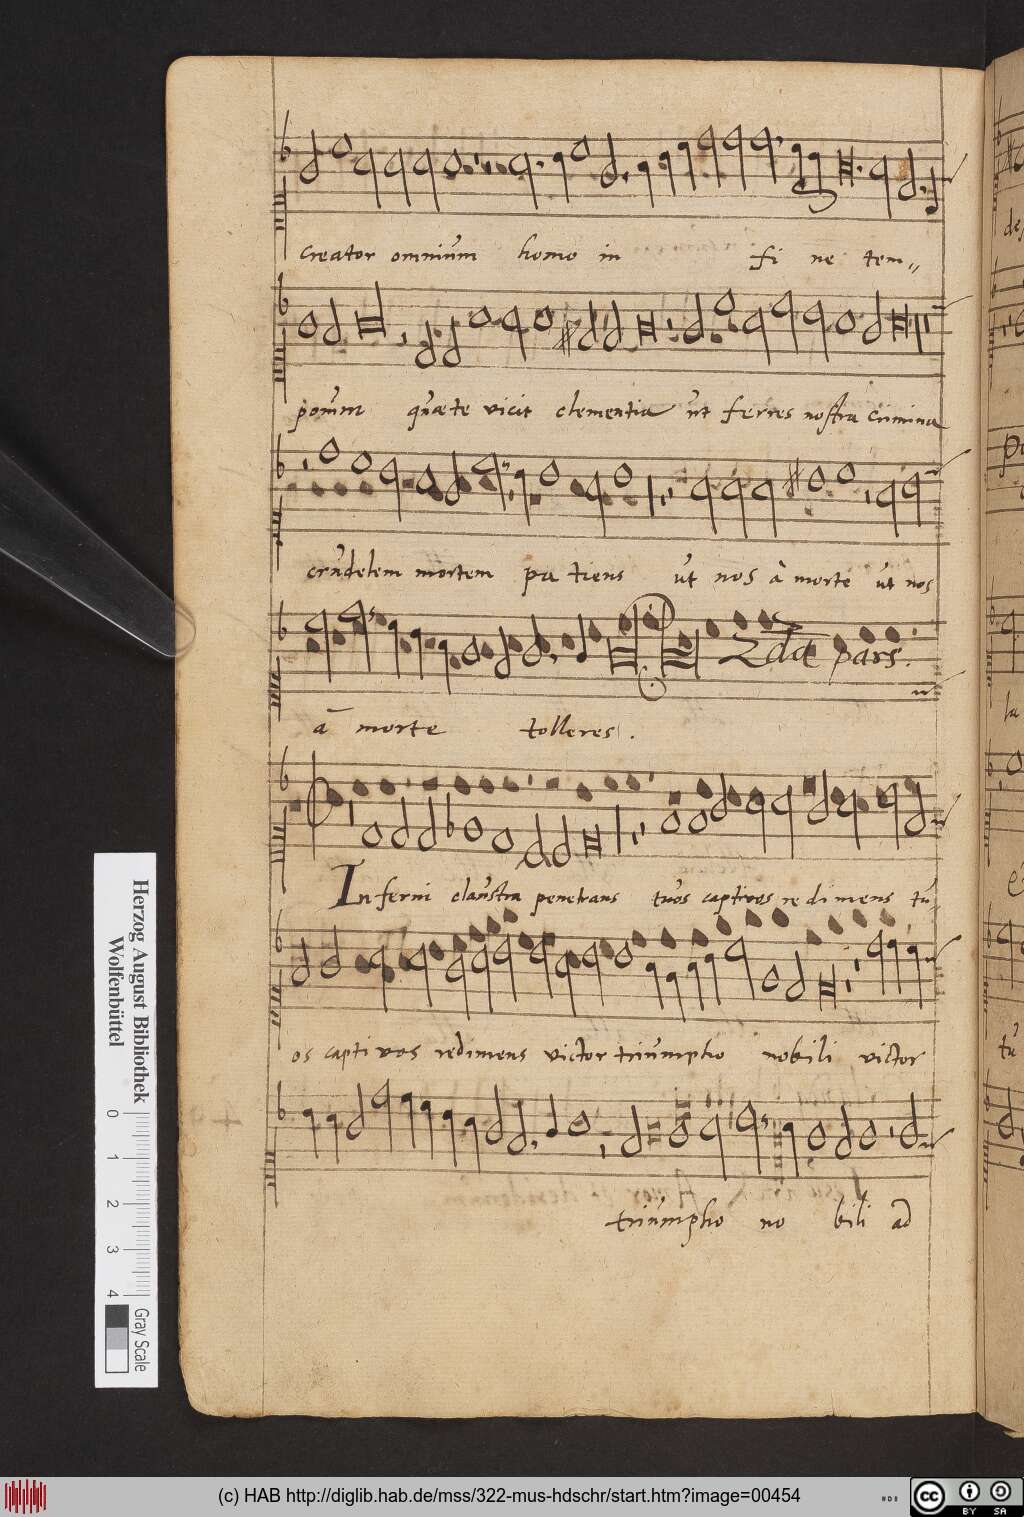 creator omnium homo in fi ne tem-
porum quæte vicit clementia ut ferres nostra crimina
crudelem mortem pa tiens ut nos à morte ut nos
à morte tolleres.
2da pars.
Inferni claustra penetrans tuos captivos redimens tu-
os captivos redimens victor triumpho nobili victor
triumpho no bili ad
Herzog August Bibliothek
Wolfenbüttel
0 1 2 3 4
Gray Scale
(c) HAB http://diglib.hab.de/mss/322-mus-hdschr/start.htm?image=00454
cc BY SA